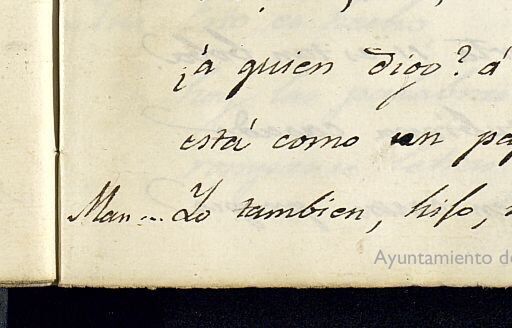 ¡a quien digo? á
está como un pa
Man... Yo tambien, hijo,
Ayuntamiento de